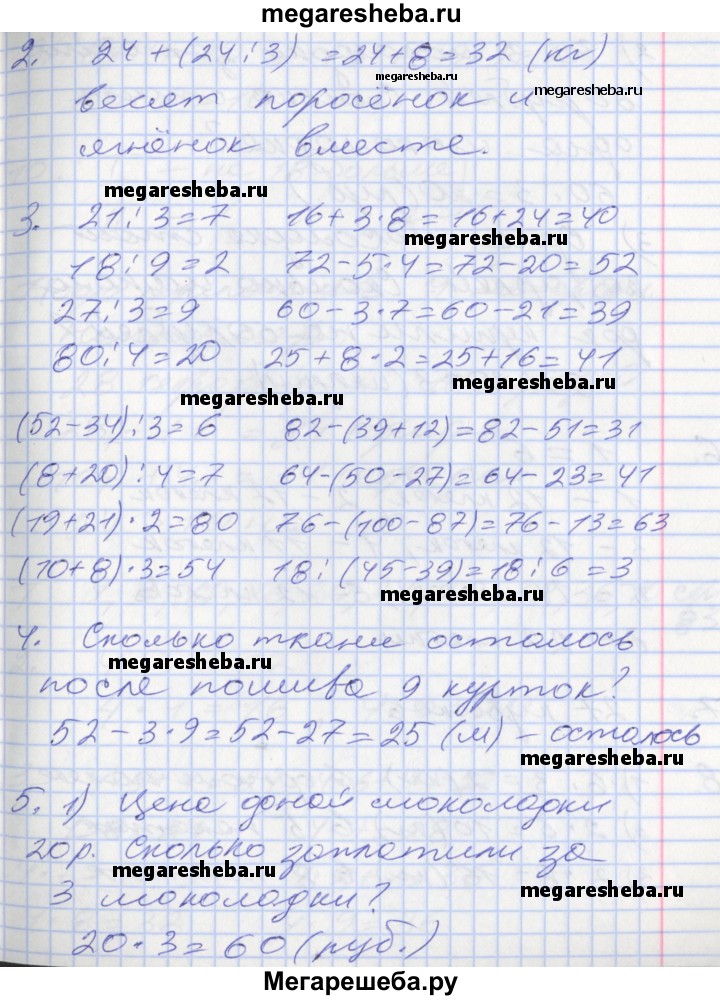 megaresheba.ru
2. 24 + (24 : 3) = 24 + 8 = 32 (кг)
megaresheba.ru
megaresheba.ru
весят поросёнок и
ягнёнок вместе.
megaresheba.ru
3. 21 : 3 = 7 16 + 3 · 8 = 16 + 24 = 40
megaresheba.ru
18 : 9 = 2 72 - 5 · 4 = 72 - 20 = 52
27 : 3 = 9 60 - 3 · 7 = 60 - 21 = 39
80 : 4 = 20 25 + 8 · 2 = 25 + 16 = 41
megaresheba.ru
megaresheba.ru
(52 - 34) : 3 = 6 82 - (39 + 12) = 82 - 51 = 31
(8 + 20) : 4 = 7 64 - (50 - 27) = 64 - 23 = 41
megaresheba.ru
(19 + 21) · 2 = 80 76 - (100 - 87) = 76 - 13 = 63
(10 + 8) · 3 = 54 18 : (45 - 39) = 18 : 6 = 3
megaresheba.ru
4. Сколько ткани осталось
megaresheba.ru
после пошива 9 курток?
52 - 3 · 9 = 52 - 27 = 25 (м) - осталось
megaresheba.ru
5. 1) Цена доной шоколадки
20 р. Сколько заплатили за
megaresheba.ru
megaresheba.ru
3 шоколадки?
20 · 3 = 60 (руб.)
Мегарешеба.ру